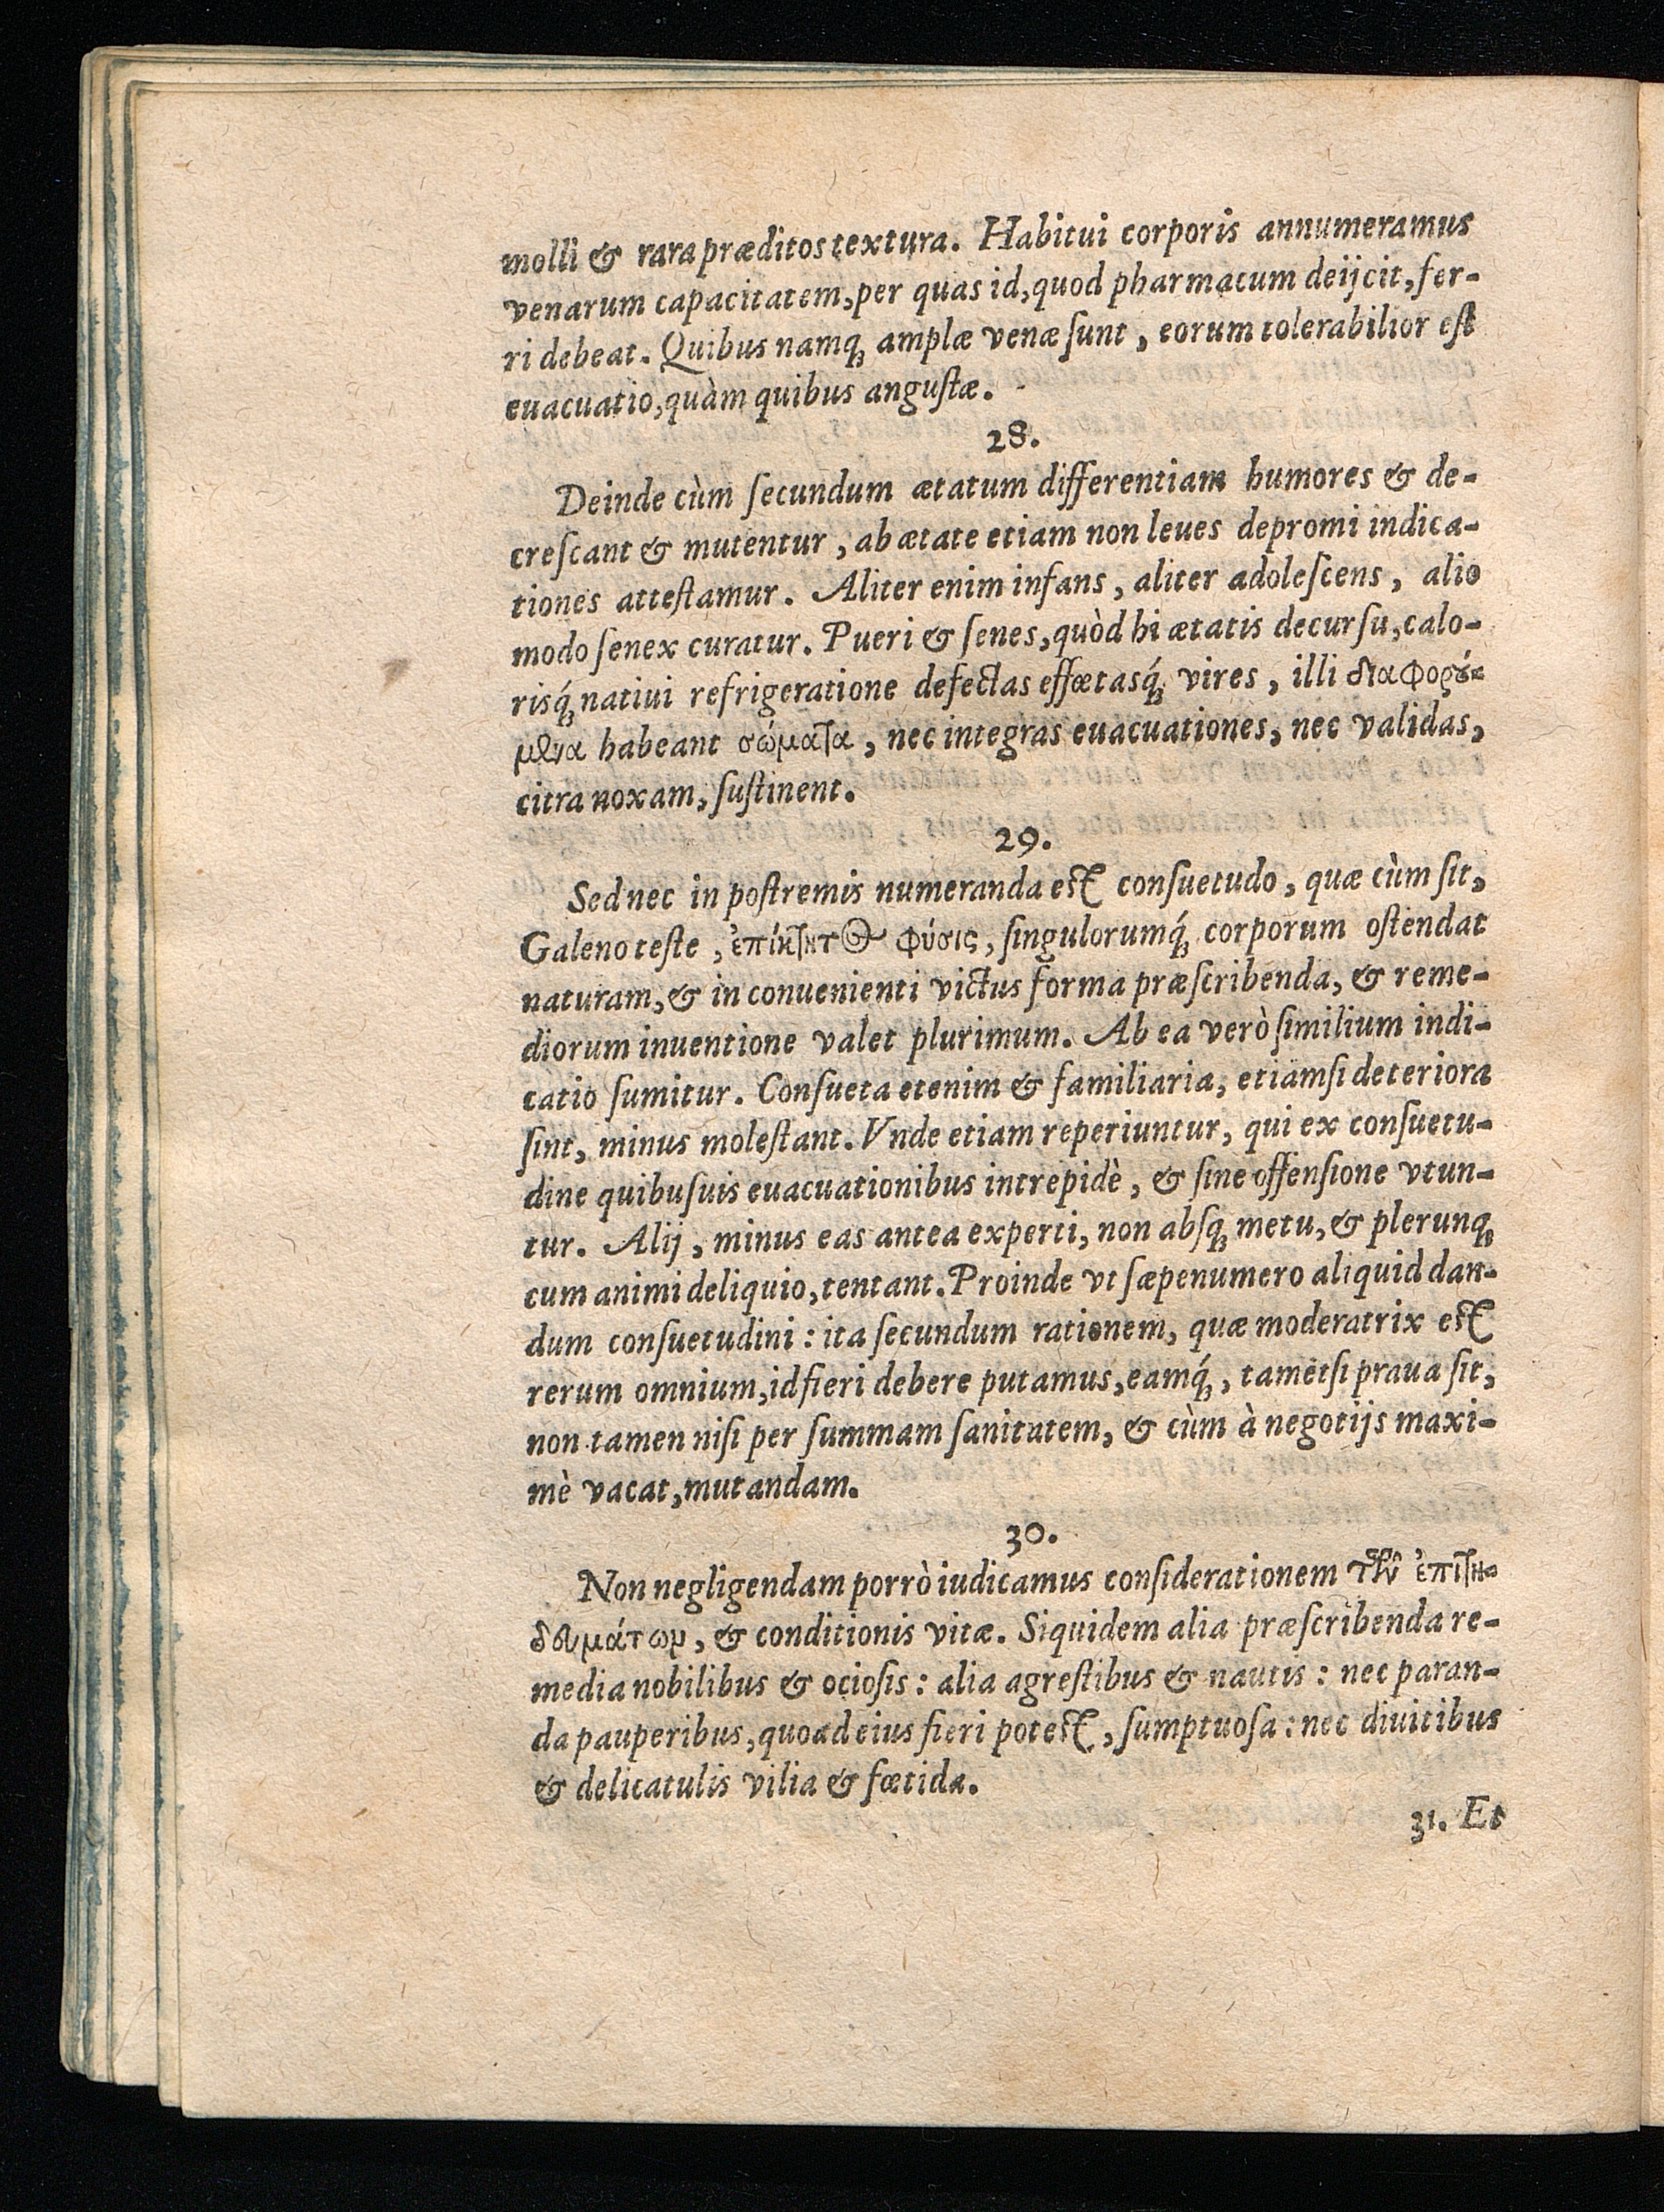 molli & rara præditos textura. Habitui corporis annumeramus
venarum capacitatem, per quas id, quod pharmacum deijcit, fer-
ri debeat. Quibus namq́ꝫ amplæ venæ ſunt, eorum tolerabilior eſt
euacuatio, quàm quibus anguſtæ.
28.
Deinde cùm ſecundum ætatum differentiam humores & de-
creſcant & mutentur, ab ætate etiam non leues depromi indica-
tiones atteſtamur. Aliter enim infans, aliter adoleſcens, alio
modo ſenex curatur. Pueri & ſenes, quòd hi ætatis decurſu, calo-
risq́ꝫ natiui refrigeratione defectas effœtasq́ꝫ vires, illi διαφορού-
μενα habeant σώματα, nec integras euacuationes, nec validas,
citra noxam, ſuſtinent.
29.
Sed nec in poſtremis numeranda eſt conſuetudo, quæ cùm ſit,
Galeno teſte, ἐπίκτητος φύσις, ſingulorumq́ꝫ corporum oſtendat
naturam, & in conuenienti victus forma præſcribenda, & reme-
diorum inuentione valet plurimum. Ab ea verò ſimilium indi-
catio ſumitur. Conſueta etenim & familiaria, etiamſi deteriora
ſint, minus moleſtant. Vnde etiam reperiuntur, qui ex conſuetu-
dine quibuſuis euacuationibus intrepidè, & ſine offenſione vtun-
tur. Alij, minus eas antea experti, non abſqꝫ metu, & plerunqꝫ
cum animi deliquio, tentant. Proinde vt ſæpenumero aliquid dan-
dum conſuetudini: ita ſecundum rationem, quæ moderatrix eſt
rerum omnium, id fieri debere putamus, eamq́ꝫ, tametſi praua ſit,
non tamen niſi per ſummam ſanitatem, & cùm à negotijs maxi-
mè vacat, mutandam.
30.
Non negligendam porrò iudicamus conſiderationem τῶν ἐπιτη-
δευμάτων, & conditionis vitæ. Siquidem alia præſcribenda re-
media nobilibus & ocioſis: alia agreſtibus & nautis: nec paran-
da pauperibus, quoad eius fieri poteſt, ſumptuoſa: nec diuitibus
& delicatulis vilia & fœtida.
31. Et